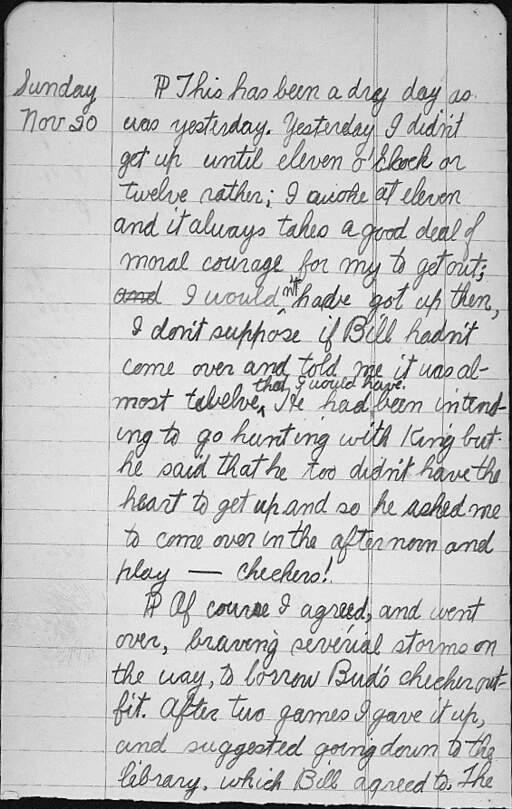 Sunday
Nov 20
¶ This has been a dry day as
was yesterday. Yesterday I didn't
get up until eleven o'clock or
twelve rather; I awoke at eleven
and it always takes a good deal of
moral courage for my to get out;
and I wouldn't have got up then,
I don't suppose if Bill hadn't
come over and told me it was al-
most twelve, that I would have. He had been intend-
ing to go hunting with King but
he said that he too didn't have the
heart to get up and so he asked me
to come over in the afternoon and
play — checkers!
¶ Of course I agreed, and went
over, braving several storms on
the way, to borrow Bud's checker out-
fit. After two games I gave it up,
and suggested going down to the
library, which Bill agreed to. The